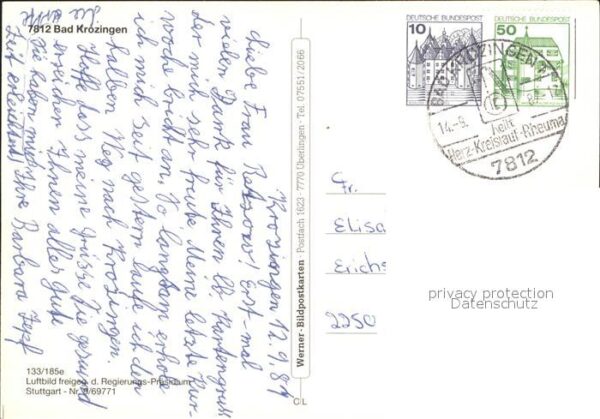 7812 Bad Krozingen
Krozingen 12.9.81
Liebe Frau Erst-mal
vielen Dank für Ihren lb. Kartengruss
der mich sehr freute. Meine letzte Kur-
woche bricht an. So langsam erhole
ich mich. Seit gestern laufe ich den
halben Weg nach Krozingen.
Hoffe dass meine Grüsse Sie gesund
erreichen. Ihnen alles Gute
Sie haben mir
die erste
Zeit erleichtert! Ihre Barbara Zepf
133/185e
Luftbild freigeg. d. Regierungs-Präsidium
Stuttgart - Nr. /69771
Werner-Bildpostkarten · Postfach 1623 · 7770 Überlingen · Tel. 07551/2066
C L
DEUTSCHE BUNDESPOST
10
DEUTSCHE BUNDESPOST
50
BAD KROZINGEN
14.-9.
heilt
Herz-Kreislauf-Rheuma
7812
Fr.
Elisa
Erichs
2250
privacy protection
Datenschutz